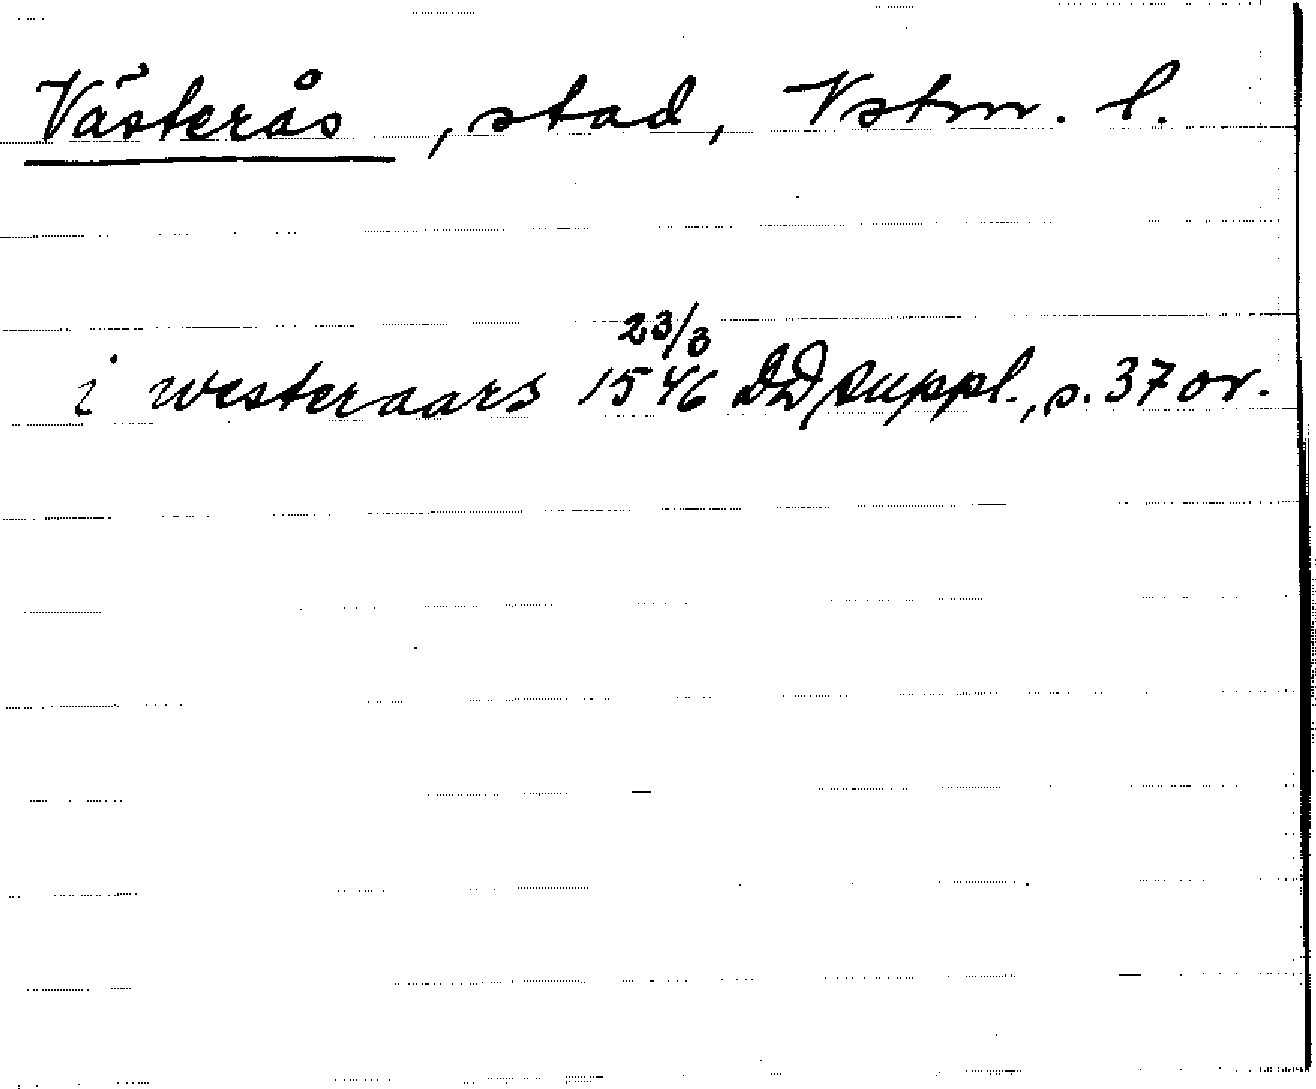 Västerås, stad, Vstm. l.
i westeraars 23/3 1546 DD Suppl., s. 37 or.